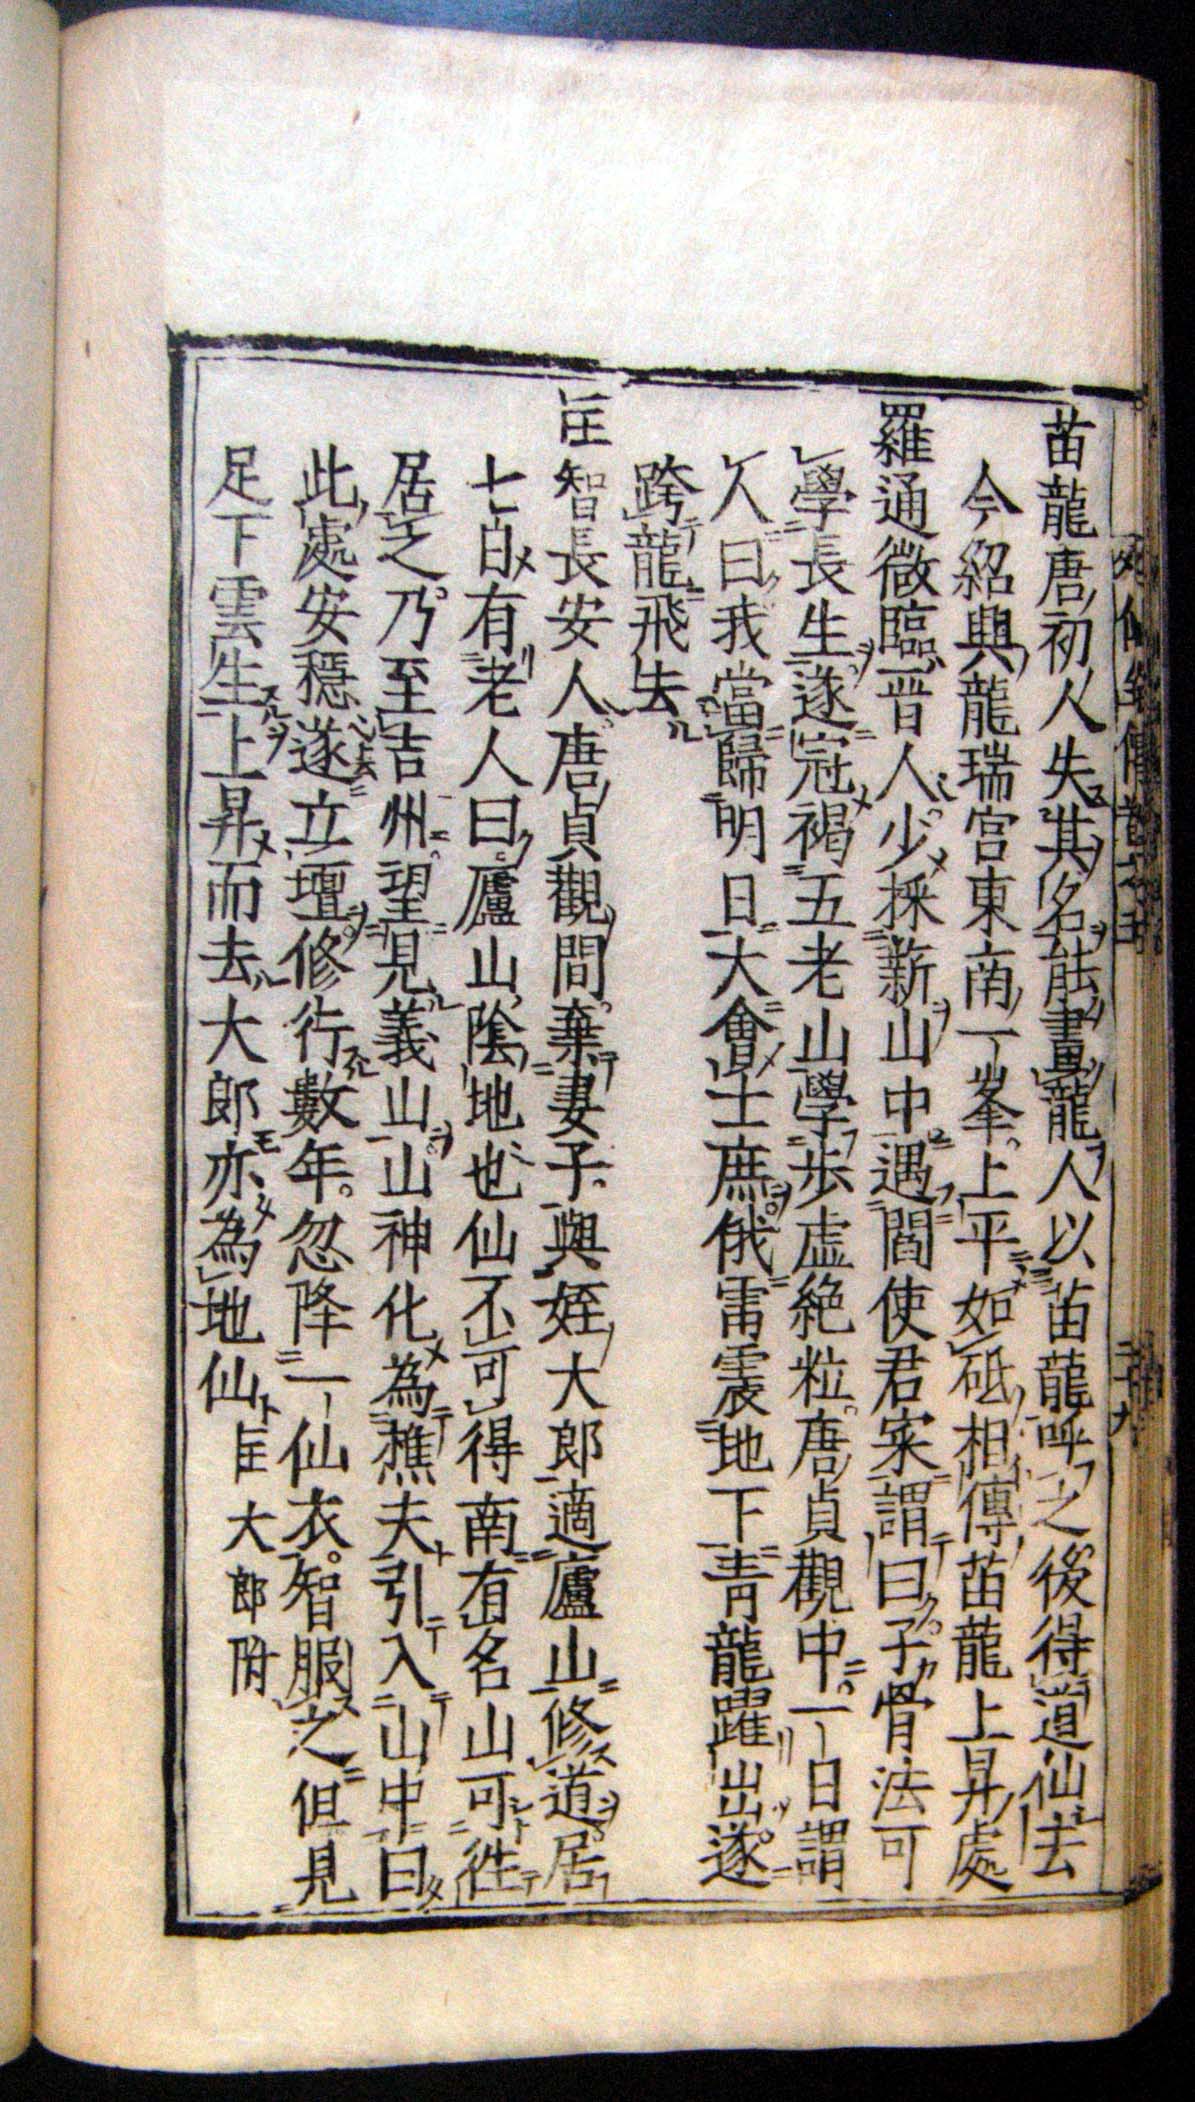 苗龍唐初人失其名能畫龍人以苗龍呼之後得道仙去
今紹興龍瑞宮東南一峯上平如砥相傳苗龍上昇處
羅通微臨晉人少採薪山中遇閻使君寀謂曰子骨法可
學長生遂冠褐五老山學步虛絶粒唐貞觀中一日謂
人曰我當歸明日大會士庶俄雷震地下青龍躍出遂
跨龍飛去
匡智長安人唐貞觀間棄妻子與姪大郎適廬山修道居
七日有老人曰廬山陰地也仙不可得南有名山可徃
居之乃至吉州望見義山山神化為樵夫引入山中曰
此處安穩遂立壇修行數年忽降一仙衣智服之但見
足下雲生上昇而去大郎亦為地仙匡大郎附